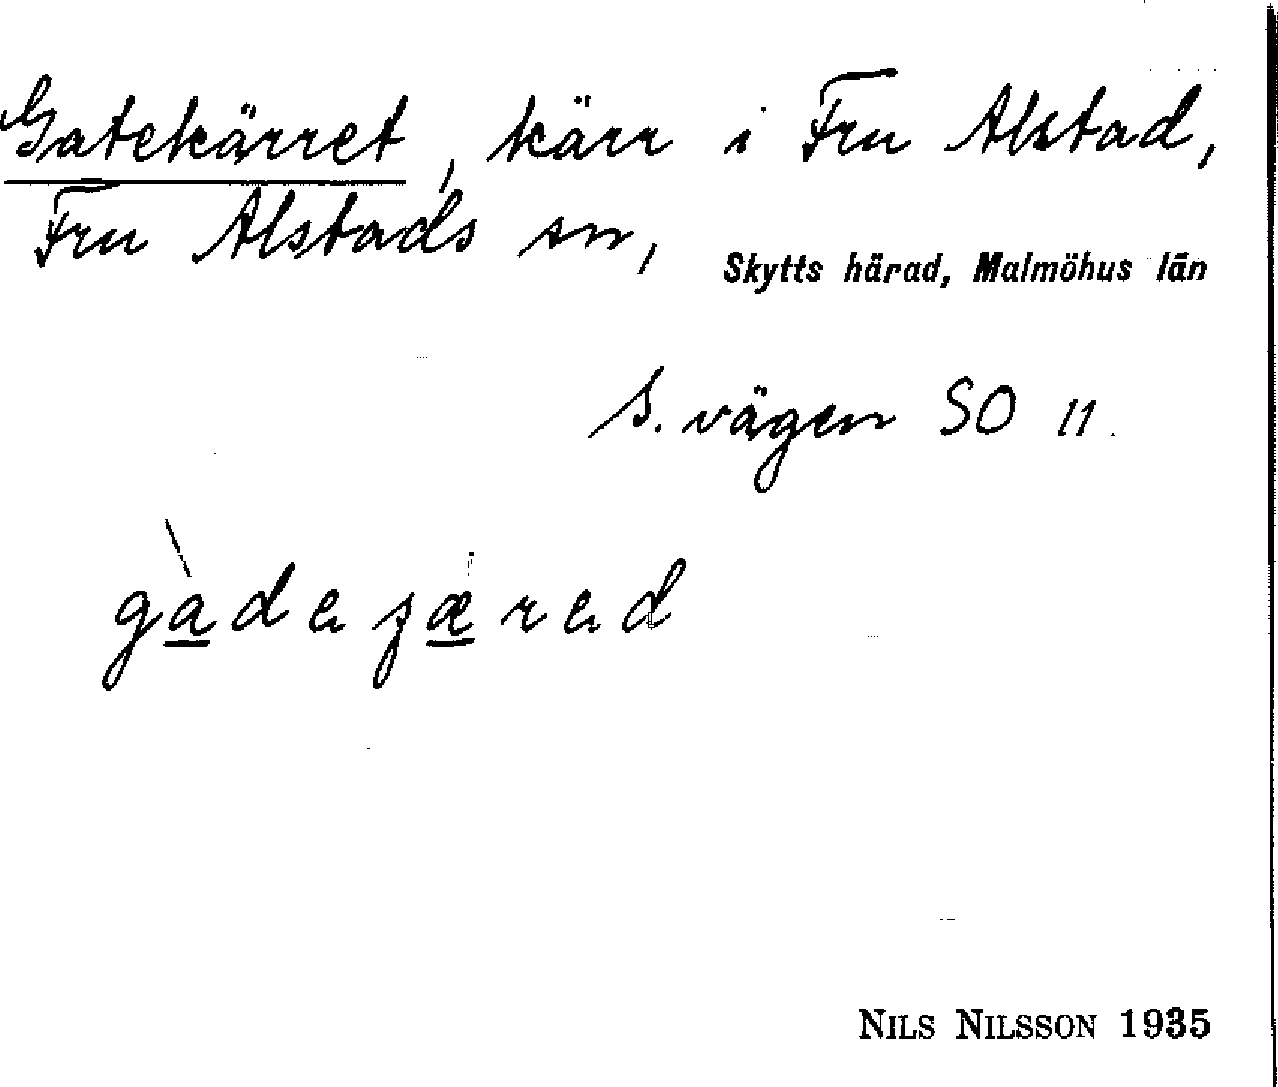 Gatekärret, kärr i Fru Alstad,
Fru Alstads sn, Skytts härad, Malmöhus län
S. vägen SO 11.
gàdeʒæred
NILS NILSSON 1935